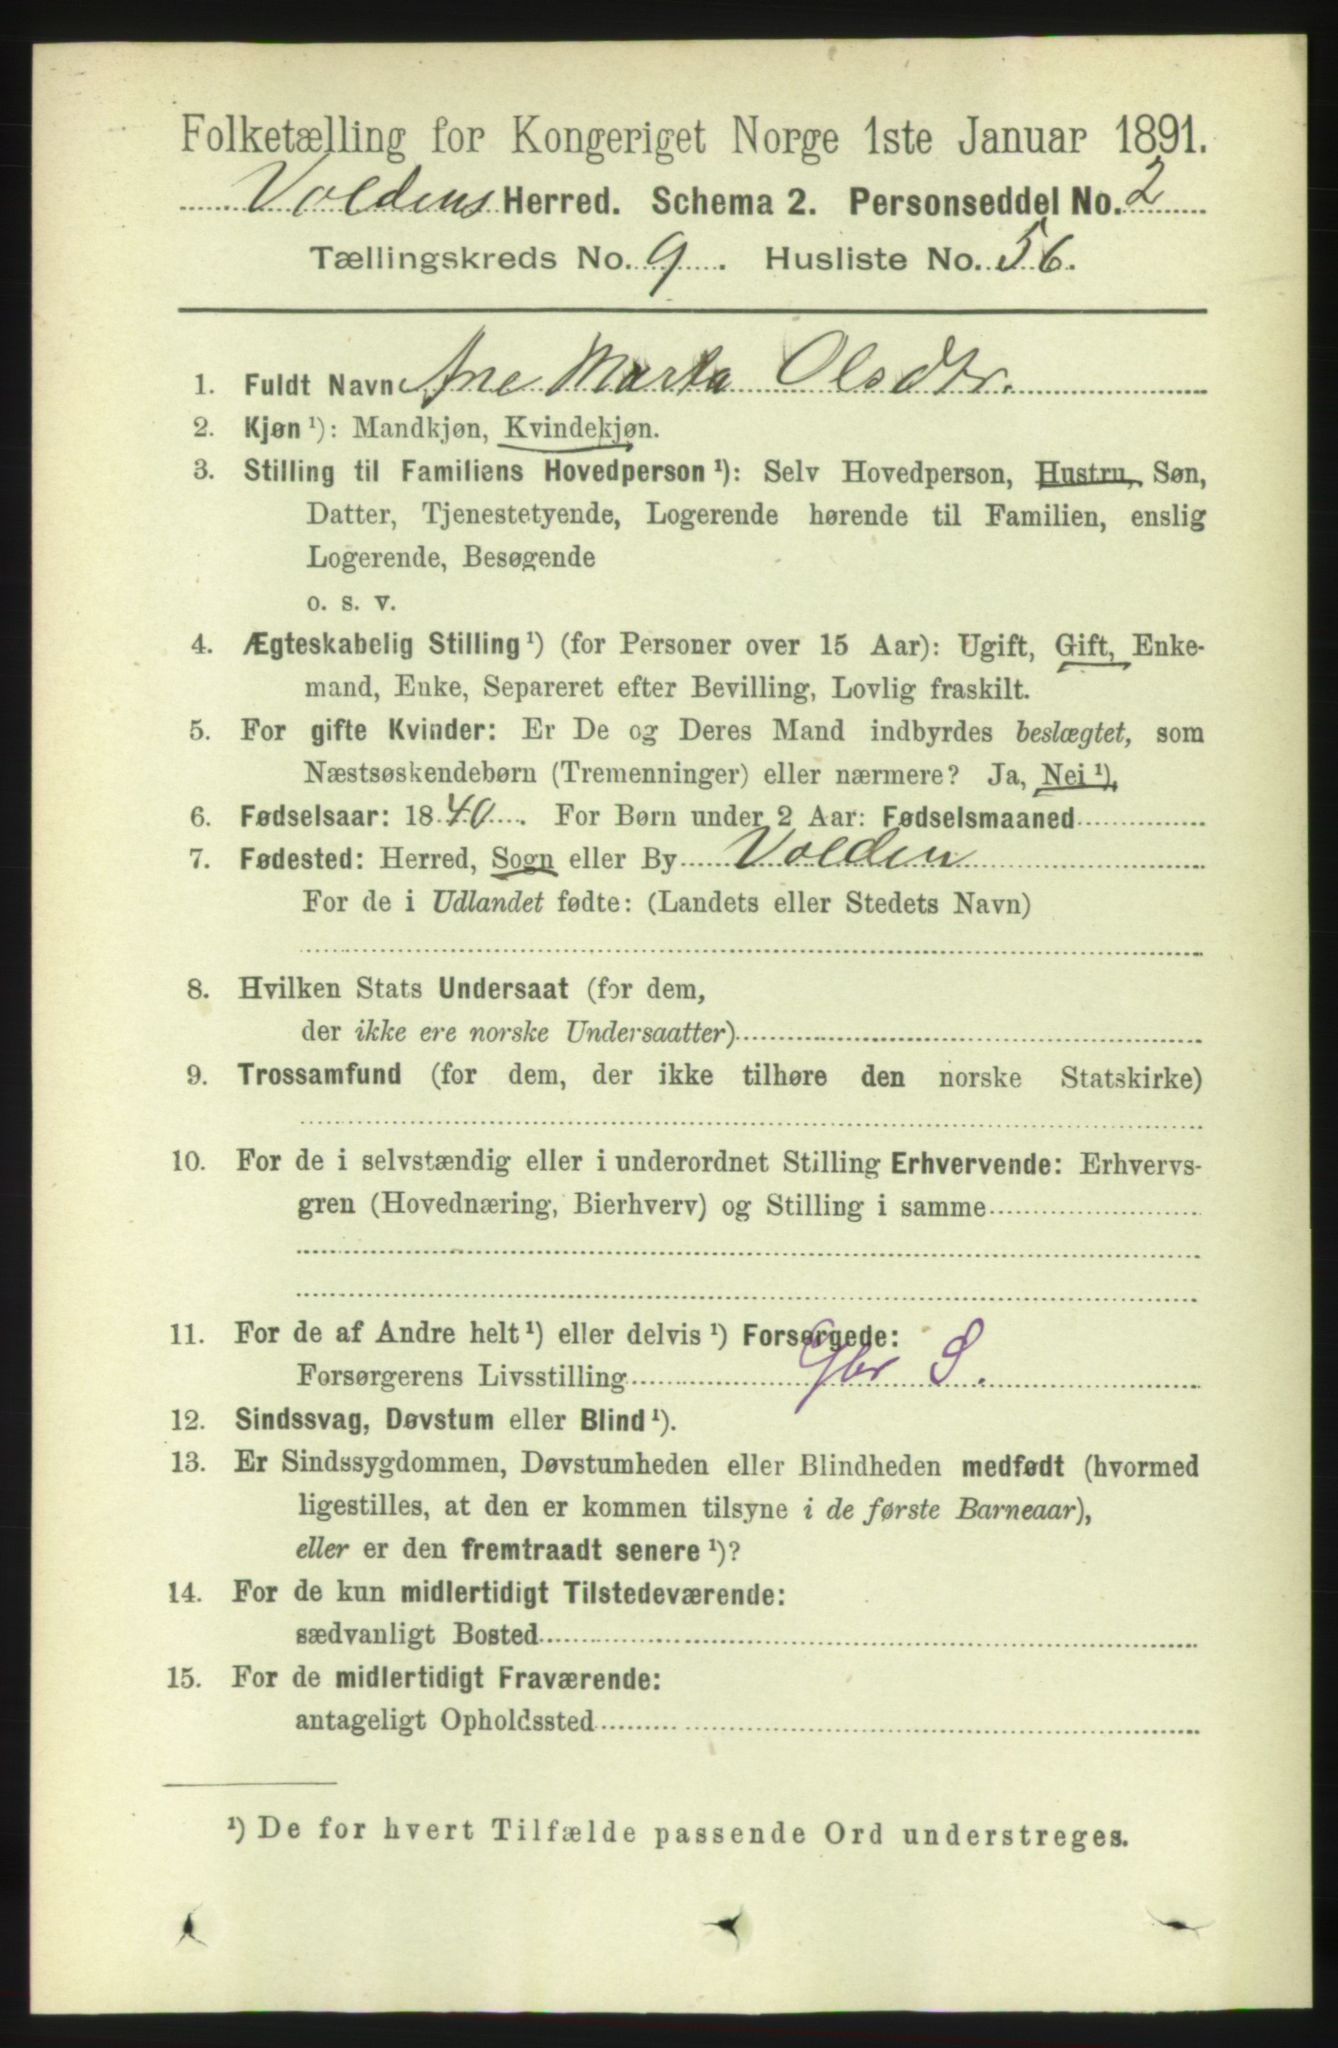 Folketælling for Kongeriget Norge 1ste Januar 1891.
Voldens Herred. Schema 2. Personseddel No. 2
Tællingskreds No. 9. Husliste No. 56.
1. Fuldt Navn Ane Marta Olsdtr.
2. Kjøn ¹): Mandkjøn, Kvindekjøn.
3. Stilling til Familiens Hovedperson ¹): Selv Hovedperson, Hustru, Søn,
Datter, Tjenestetyende, Logerende hørende til Familien, enslig
Logerende, Besøgende
o. s. v.
4. Ægteskabelig Stilling ¹) (for Personer over 15 Aar): Ugift, Gift, Enke-
mand, Enke, Separeret efter Bevilling, Lovlig fraskilt.
5. For gifte Kvinder: Er De og Deres Mand indbyrdes beslægtet, som
Næstsøskendebørn (Tremenninger) eller nærmere? Ja, Nei ¹),
6. Fødselsaar: 1840. For Børn under 2 Aar: Fødselsmaaned
7. Fødested: Herred, Sogn eller By Volden
For de i Udlandet fødte: (Landets eller Stedets Navn)
8. Hvilken Stats Undersaat (for dem,
der ikke ere norske Undersaatter)
9. Trossamfund (for dem, der ikke tilhøre den norske Statskirke)
10. For de i selvstændig eller i underordnet Stilling Erhvervende: Erhvervs-
gren (Hovednæring, Bierhverv) og Stilling i samme
11. For de af Andre helt ¹) eller delvis ¹) Forsørgede:
Forsørgerens Livsstilling Gbr S.
12. Sindssvag, Døvstum eller Blind ¹).
13. Er Sindssygdommen, Døvstumheden eller Blindheden medfødt (hvormed
ligestilles, at den er kommen tilsyne i de første Barneaar),
eller er den fremtraadt senere ¹)?
14. For de kun midlertidigt Tilstedeværende:
sædvanligt Bosted
15. For de midlertidigt Fraværende:
antageligt Opholdssted
¹) De for hvert Tilfælde passende Ord understreges.